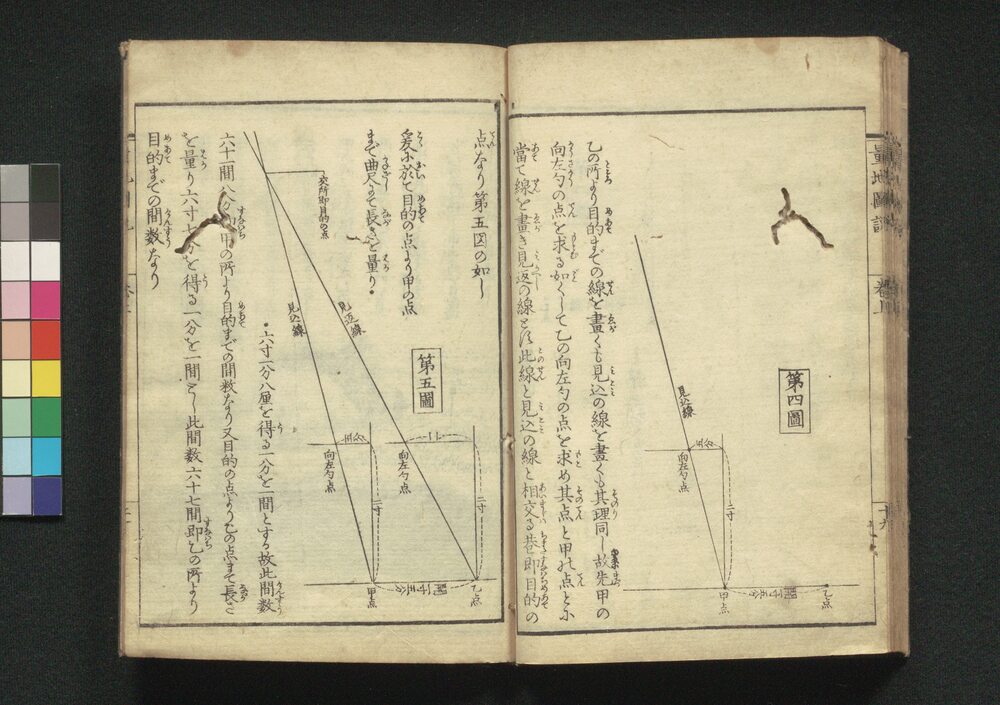 量地圖説
巻上
十九
第四圖
見込線
五分
向左勺点
二寸
甲点
乙点
乙の所より目的までの線を畫くも見込の線を畫くも其理同し故先甲の
向左勺の点を求る如くして乙の向左勺の点を求め其点と甲の点とに
當て線を畫き見返の線とす此線と見込の線と相交る巷即目的の
点なり第五図の如し
爰に於て目的の点より甲の点
まで曲尺にて長さを量り
第五圖
交所即目的の点
見込線
見込線
五分
向左勺点
向左勺点
二寸
甲点
乙点
六寸一分八厘を得る一分を一間とする故此間数
六十一間八分即甲の所より目的までの間数なり又目的の点より乙の点まで長さ
を量り六寸七分を得る一分を一間とし此間数六十七間即乙の所より
目的までの間数なり